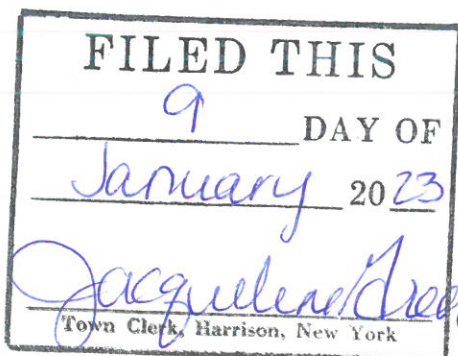 FILED THIS
9 DAY OF
January 2023
Jacqueline
Town Clerk, Harrison, New York